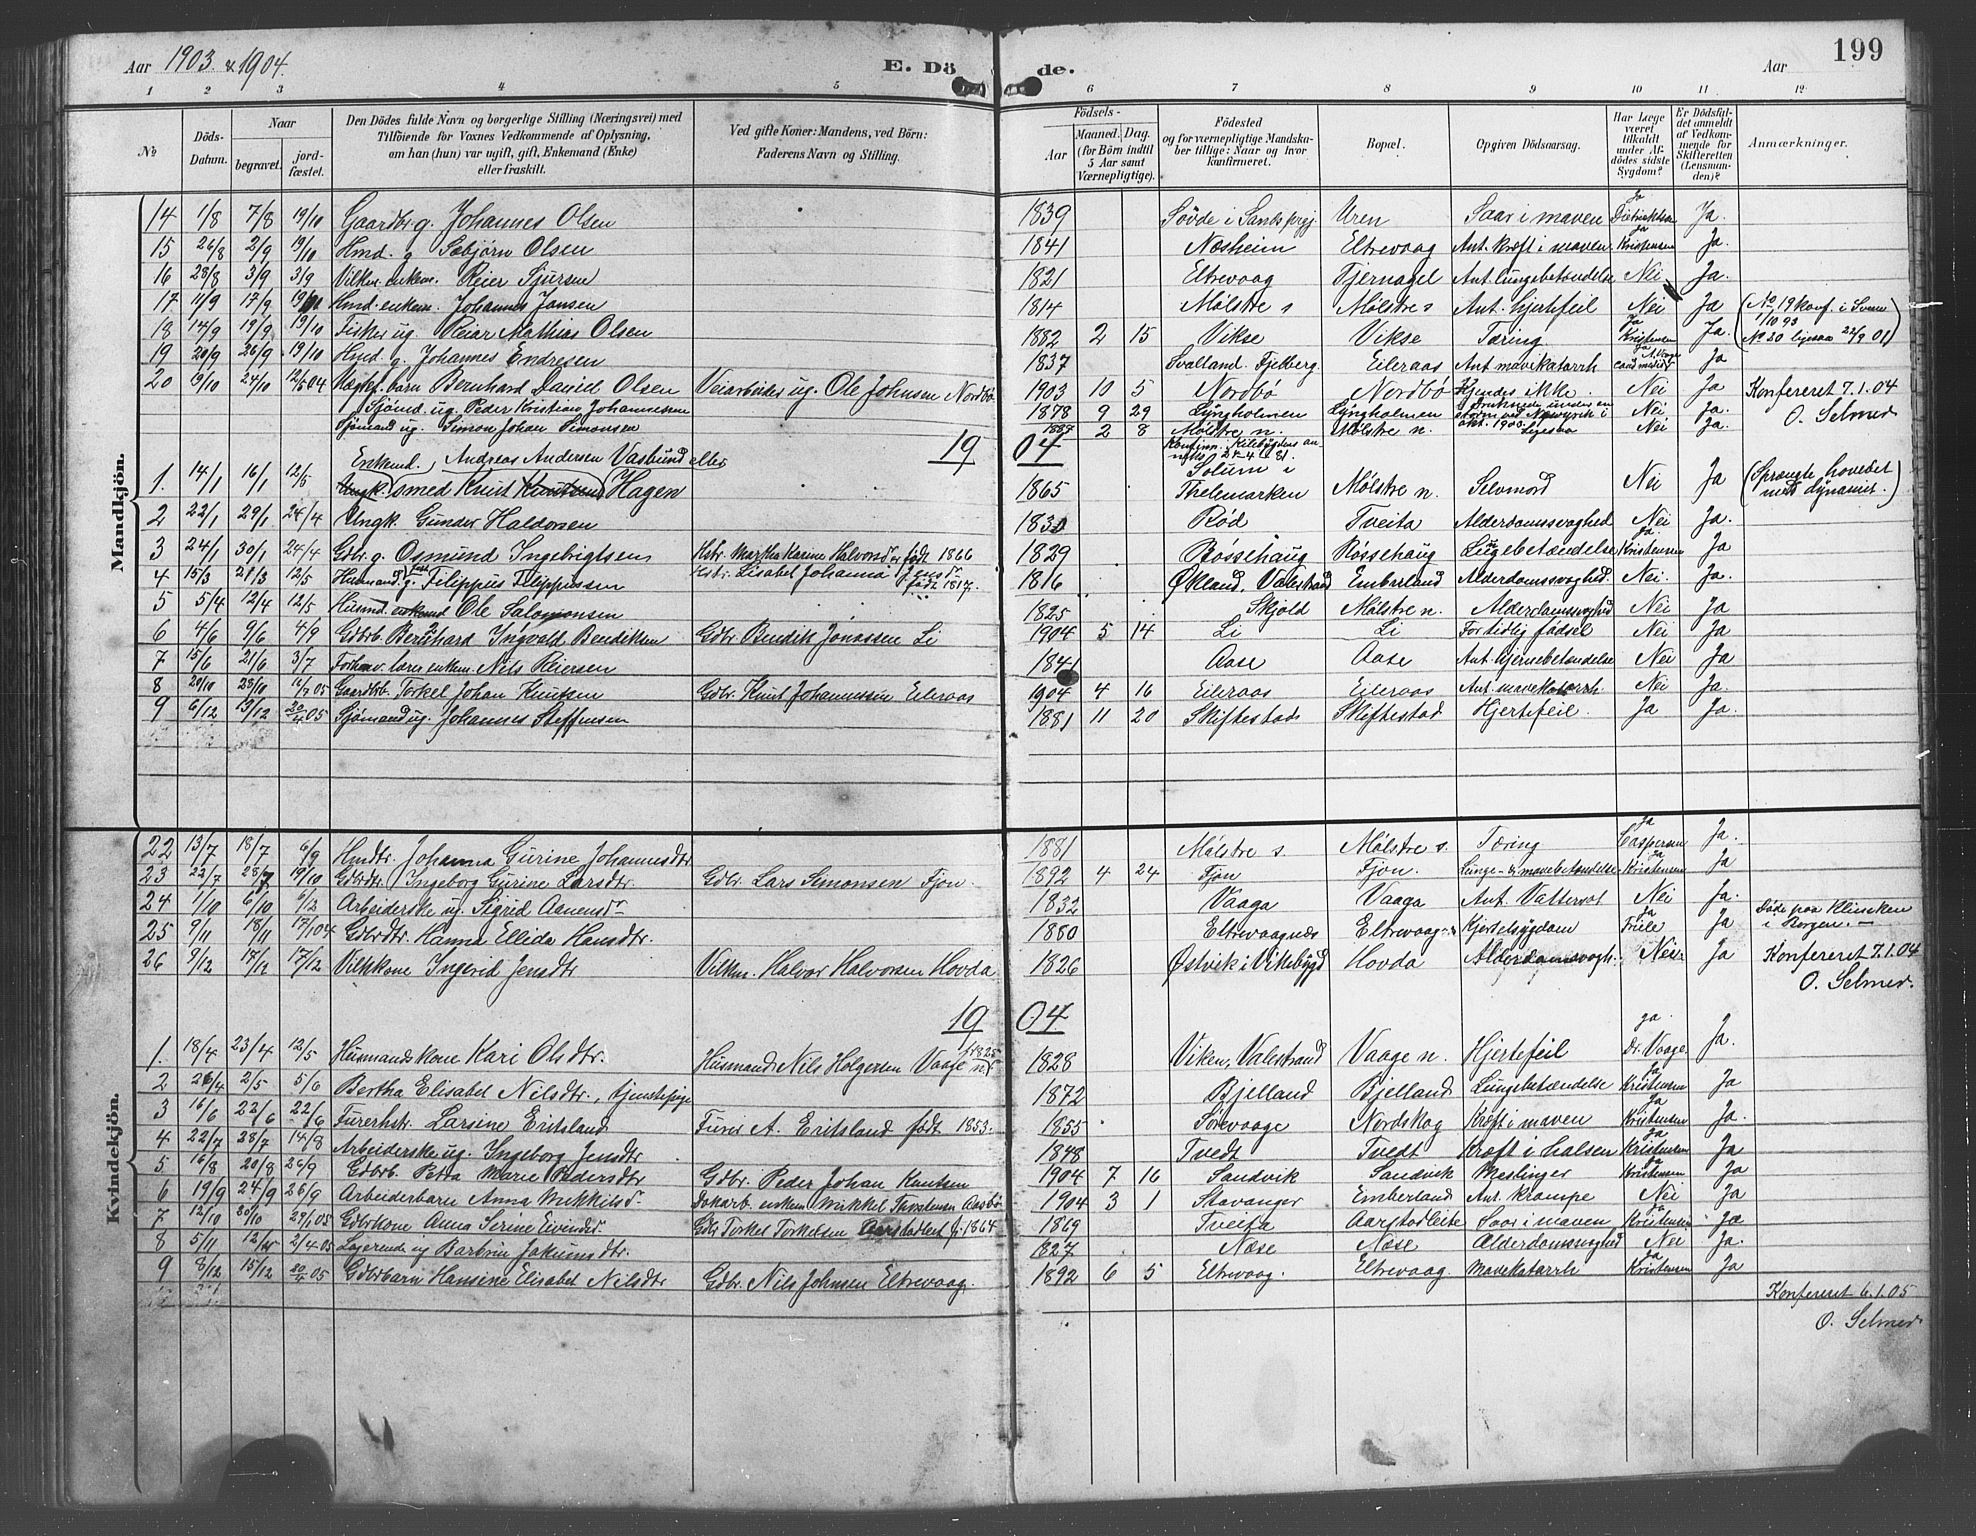 Aar 1903 & 1904. E. Dö de. Aar 199
1 2 3 4 5 6 7 8 9 10 11 12
No
Döds-Datum.
Naar begravet. jordfæstet.
Den Dödes fulde Navn og borgerlige Stilling (Næringsvei) med
Tilföiende for Voxnes Vedkommende af Oplysning,
om han (hun) var ugift, gift, Enkemand (Enke)
eller fraskilt.
Ved gifte Koner: Mandens, ved Börn:
Faderens Navn og Stilling.
Födsels-
Aar
Maaned. Dag.
(for Börn indtil
5 Aar samt
Værnepligtige).
Födested
og for værnepligtige Mandska-
ber tillige: Naar og hvor
konfirmeret.
Bopæl.
Opgiven Dödsaarsag.
Har Læge
været
tilkaldt
under Af-
dödes sidste
Sygdom?
Er Dödsfal-
det anmeldt
af Vedkom-
mende for
Skifteretten
(Lensman-
den)?
Anmærkninger.
Mandkjön.
14 1/8 7/8 19/10 Gaardbr g. Johannes Olsen 1839 Søvde i Uren Saar i maven Ja Ja.
15 26/8 2/9 19/10 Hmd. g Sæbjørn Olsen 1841 Næsheim Eltrevaag Ant. kræft i maven ja Kristensen Ja.
16 28/8 3/9 3/9 enkem. Reier Sjursen 1821 Eltrevaag Tjernagel Ant. Lungebetændelse Nei Ja.
17 11/9 17/9 Hmd. enkem. Johannes Jansen 1814 Mølstre s Mølstre s Ant. hjertefeil Nei Ja
18 14/9 19/9 19/10 Fisker ug. Reiar Mathias Olsen 1882 2 15 Vikse Vikse Tæring Ja Kristensen Ja. (No 19 konf. i Sveen 1/10 93
19 20/9 26/9 19/10 Hmd. g. Johannes Endresen 1837 Svalland. Fjelberg. Eileraas Ant mavekatarrh ja Ja No 20 22/9 01)
20 19/10 24/10 12/5 04 barn Bernhard David. Olsen Veiarbeider ug. Ole Johnsen Nordbø 1903 10 5 Nordbø Nordbø Kjendes ikke. Nei Ja Konfereret 7.1.04
Sjømd. ug. Peder Kristian Johannessen 1878 9 29 Lyngholmen Lyngholmen Druknede under en storm ved Newyork i okt. 1900. Nei. Ja. O. Selmer
Sjømand ug. Simon Johan Simonsen 1887 2 8 Mølstre n. Mølstre n. Ligesaa Nei Ja.
19 04
Enkemd. Andreas Andersen Vasbund eller
1. 14/1 16/1 12/5 Ungk. (smed Knut Knutsen) Hagen 1865 Solum i Thelemarken Mølstre n. Selvmord Nei Ja (Sprængte hovedet med dynamit.)
2 22/1 29/1 24/4 Ungk. Gunder Haldorsen Rød Tveita Alderdomssvaghed Nei Ja.
3 24/1 30/1 24/4 Gdbr. g. Osmund Ingebrigtsen Hstr. Martha Karine født 1866 1829 Røssehaug Røssehaug Lungebetændelse Ja Kristensen Ja
4 15/3 21/3 12/5 Husmand. g. Filippus Filippussen Hstr. Lisabet Johanna født 1817. 1816 Økland, Valestrand Emberland Alderdomssvaghed. Nei. Ja.
5 5/4 12/4 12/5 Husmd. enkemd Ole Salomonsen 1825 Skjold Mølstre n. Alderdomssvaghed Nei Ja
6 4/6 9/6 4/9 Gdbrb. Bernhard Ingvald Bendiksen Gdbr Bendik Jonassen Li 1904 5 14 Li Li For tidlig fødsel Nei Ja
7 15/6 21/6 3/7 Forhenv. lærer enkem. Nils Reiersen 1841 Aase Aase Ant. hjernebetændelse Nei Ja
8 20/10 28/10 Gaardbrb. Torkel Johan Knutsen Gdbr. Knut Johannessen Eileraas 1904 4 16 Eileraas Eileraas Ant. mavekatarrh Nei Ja.
9 6/12 13/12 05 Sjømand ug. Johannes Steffensen 1881 11 20 Skiftestad Skiftestad Hjertefeil. Ja Ja.
Kvindekjön.
22 13/7 18/7 6/9 Hmdtr. Johanna Gurine Johannesdtr 1881 Mølstre s. Mølstre s. Tæring Ja Caspersen Ja.
23 22/7 28/7 19/10 Gdbrdtr. Ingeborg Gurine Larsdtr. Gdbr. Lars Simonsen Fjon. 1892 4 24 Fjon Fjon. Lunge- & mavebetændelse Ja Kristensen Ja
24 1/10 6/10 9/12 Arbeiderske ug. Sigrid Aanensdr 1832 Vaaga Vaaga Ant. Vattersot Nei Ja.
25 9/11 18/11 17/1 04 Gdbrdtr. Hanna Ellida Hansdtr. 1880 Eltrevaagnæs Eltrevaag Ja Ja Døde paa Klinikken i Bergen.
26 9/12 17/12 Vilkkone Ingerid Jensdtr Vilkm. Halvor Halvorsen Hovda 1826 Østvik i Vikebygd Hovda Alderdomssvagh. Nei Ja Konfereret 7.1.04
O. Selmer.
19 04
1. 18/4 23/4 12/5 Husmandskone Kari Olsdtr. Husmand Nils Holgersen Vaage n. f. 1825 1828 Viken, Valestrand Vaage n. Hjertefeil ja. Dr. Vaage. Ja.
2 26/4 2/5 5/6 Bertha Elisabet Nilsdtr., tjenestepige 1872 Bjelland Bjelland Lungebetændelse ja Kristensen Ja
3 16/6 22/6 22/6 Furerhstr. Larsine Eritsland Furer A. Eritsland født 1853. 1855 Sørevaage Nordskog Kræft i maven Ja Kristensen Ja.
4 22/7 28/7 14/8 Arbeiderske ug. Ingeborg Jensdtr. 1848 Tvedt Tvedt Kræft i Halsen ja Kristensen Ja
5 16/8 20/8 26/9 Gdbrb. Petra Marie Pedersdtr Gdbr. Peder Johan Knutsen 1904 7 16 Sandvik Sandvik Meslinger ja Kristensen Ja
6 19/9 24/9 26/9 Arbeiderbarn Anna Mikkelsdr. enkem Mikkel Thorstensen Aasbø 1904 3 1 Stavanger Emberland Ant. Krampe Nei Ja
7 12/10 20/10 29/1 05 Gdbrkone Anna Serine Eivindsdr. Gdbr Torkel Torkelsen f. 1864 1869 Tveita Aarstadleite Saar i maven Kristensen Ja
8 5/11 2/4 05 Logerende ug Barbro Jakumsdtr. 1827 Næse Næse Alderdomssvaghed Nei Ja.
9 8/12 15/12 05 Gdbrbarn Hansine Elisabet Nilsdtr Gdbr. Nils Johnsen Eltrevaag. 1892 6 5 Eltrevaag. Eltrevaag Mavekatarrh ja Kristensen Ja
Konfereret 6.1.05
O. Selmer